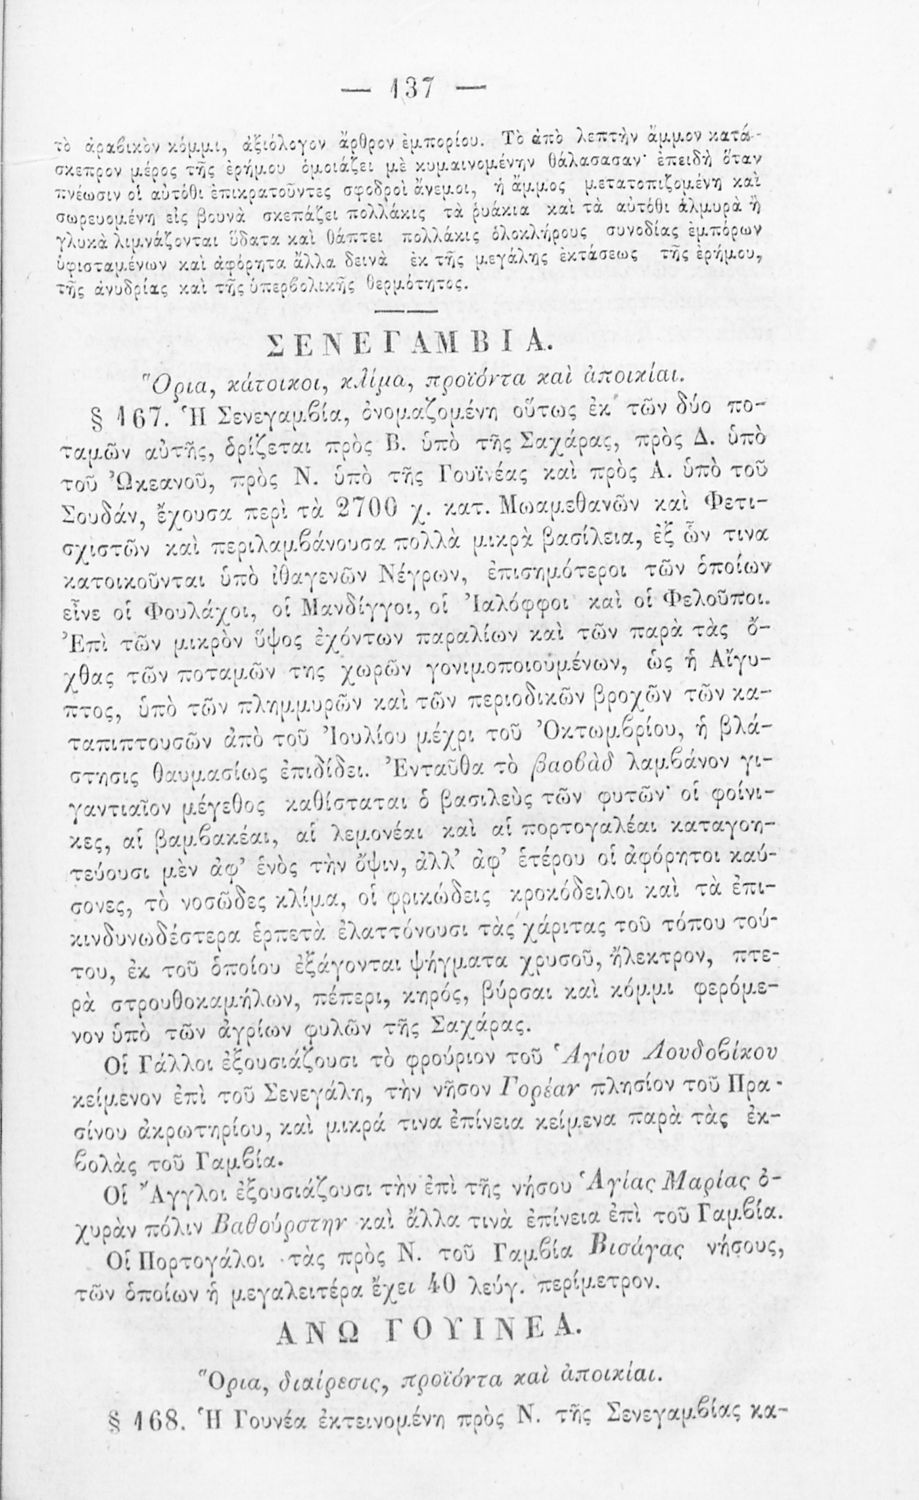 — 137 —
τὸ ἀραβικὸν κόμμι, ἀξιόλογον ἄρθρον ἐμπορίου. Τὸ ἀπὸ λεπτὴν ἄμμον κατά-
σκεπρον μέρος τῆς ἐρήμου ὁμοιάζει μὲ κυμαινομένην θάλασασαν· ἐπειδὴ ὅταν
πνέωσιν οἱ αὐτόθι ἐπικρατοῦντες σφοδροὶ ἄνεμοι, ἡ ἄμμος μετατοπιζομένη καὶ
σωρευομένη εἰς βουνὰ σκεπάζει πολλάκις τὰ ῥυάκια καὶ τὰ αὐτόθι ἁλμυρὰ ἢ
γλυκὰ λιμνάζονται ὕδατα καὶ θάπτει πολλάκις ὁλοκλήρους συνοδίας ἐμπόρων
ὑφισταμένων καὶ ἀφόρητα ἄλλα δεινὰ ἐκ τῆς μεγάλης ἐκτάσεως τῆς ἐρήμου,
τῆς ἀνυδρίας καὶ τῆς ὑπερβολικῆς θερμότητος.
ΣΕΝΕΓΑΜΒΙΑ.
Ὅρια, κάτοικοι, κλίμα, προϊόντα καὶ ἀποικίαι.
§ 167. Ἡ Σενεγαμβία, ὀνομαζομένη οὕτως ἐκ τῶν δύο πο-
ταμῶν αὐτῆς, ὁρίζεται πρὸς Β. ὑπὸ τῆς Σαχάρας, πρὸς Δ. ὑπὸ
τοῦ Ὠκεανοῦ, πρὸς Ν. ὑπὸ τῆς Γουϊνέας καὶ πρὸς Α. ὑπὸ τοῦ
Σουδάν, ἔχουσα περὶ τὰ 2700 χ. κατ. Μωαμεθανῶν καὶ Φετι-
σχιστῶν καὶ περιλαμβάνουσα πολλὰ μικρὰ βασίλεια, ἐξ ὧν τινα
κατοικοῦνται ὑπὸ ἰθαγενῶν Νέγρων, ἐπισημότεροι τῶν ὁποίων
εἶνε οἱ Φουλάχοι, οἱ Μανδίγγοι, οἱ Ἰαλόφφοι καὶ οἱ Φελοῦποι.
Ἐπὶ τῶν μικρὸν ὕψος ἐχόντων παραλίων καὶ τῶν παρὰ τὰς ὄ-
χθας τῶν ποταμῶν της χωρῶν γονιμοποιουμένων, ὡς ἡ Αἴγυ-
πτος, ὑπὸ τῶν πλημμυρῶν καὶ τῶν περιοδικῶν βροχῶν τῶν κα-
ταπιπτουσῶν ἀπὸ τοῦ Ἰουλίου μέχρι τοῦ Ὀκτωμβρίου, ἡ βλά-
στησις θαυμασίως ἐπιδίδει. Ἐνταῦθα τὸ βαοβὰδ λαμβάνον γι-
γαντιαῖον μέγεθος καθίσταται ὁ βασιλεὺς τῶν φυτῶν· οἱ φοίνι-
κες, αἱ βαμβακέαι, αἱ λεμονέαι καὶ αἱ πορτογαλέαι καταγοη-
τεύουσι μὲν ἀφ’ ἑνὸς τὴν ὄψιν, ἀλλ’ ἀφ’ ἑτέρου οἱ ἀφόρητοι καύ-
σονες, τὸ νοσῶδες κλίμα, οἱ φρικώδεις κροκόδειλοι καὶ τὰ ἐπι-
κινδυνωδέστερα ἑρπετὰ ἐλαττόνουσι τὰς χάριτας τοῦ τόπου τού-
του, ἐκ τοῦ ὁποίου ἐξάγονται ψήγματα χρυσοῦ, ἤλεκτρον, πτε-
ρὰ στρουθοκαμήλων, πέπερι, κηρός, βύρσαι καὶ κόμμι φερόμε-
νον ὑπὸ τῶν ἀγρίων φυλῶν τῆς Σαχάρας.
Οἱ Γάλλοι ἐξουσιάζουσι τὸ φρούριον τοῦ Ἁγίου Λουδοβίκου
κείμενον ἐπὶ τοῦ Σενεγάλη, τὴν νῆσον Γορέαν πλησίον τοῦ Πρα-
σίνου ἀκρωτηρίου, καὶ μικρά τινα ἐπίνεια κείμενα παρὰ τὰς ἐκ-
βολὰς τοῦ Γαμβία.
Οἱ Ἄγγλοι ἐξουσιάζουσι τὴν ἐπὶ τῆς νήσου Ἁγίας Μαρίας ὀ-
χυρὰν πόλιν Βαθούρστην καὶ ἄλλα τινὰ ἐπίνεια ἐπὶ τοῦ Γαμβία.
Οἱ Πορτογάλοι τὰς πρὸς Ν. τοῦ Γαμβία Βισάγας νήσους,
τῶν ὁποίων ἡ μεγαλειτέρα ἔχει 40 λεύγ. περίμετρον.
ΑΝΩ ΓΟΥΙΝΕΑ.
Ὅρια, διαίρεσις, προϊόντα καὶ ἀποικίαι.
§ 168. Ἡ Γουνέα ἐκτεινομένη πρὸς Ν. τῆς Σενεγαμβίας κα-